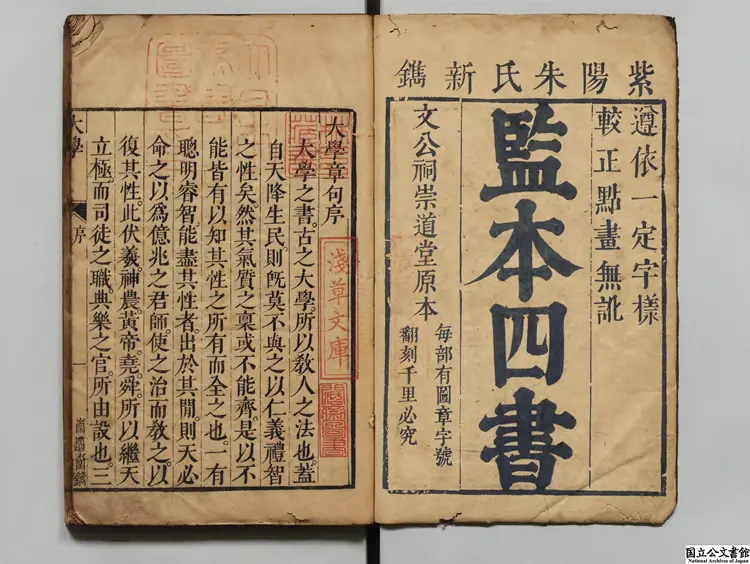 紫陽朱氏新鐫
遵依一定字樣
較正點畫無訛
監本四書
文公祠崇道堂原本
每部有圖章字號
翻刻千里必究
大學章句序
大學之書。古之大學。所以敎人之法也。蓋
自天降生民。則旣莫不與之以仁義禮智
之性矣。然其氣質之稟或不能齊。是以不
能皆有以知其性之所有而全之也。一有
聰明睿智。能盡其性者。出於其閒。則天必
命之以爲億兆之君師。使之治而敎之。以
復其性。此伏羲。神農。黃帝。堯舜。所以繼天
立極。而司徒之職。典樂之官。所由設也。三
淺草文庫
大學
序
一
国立公文書館
National Archives of Japan